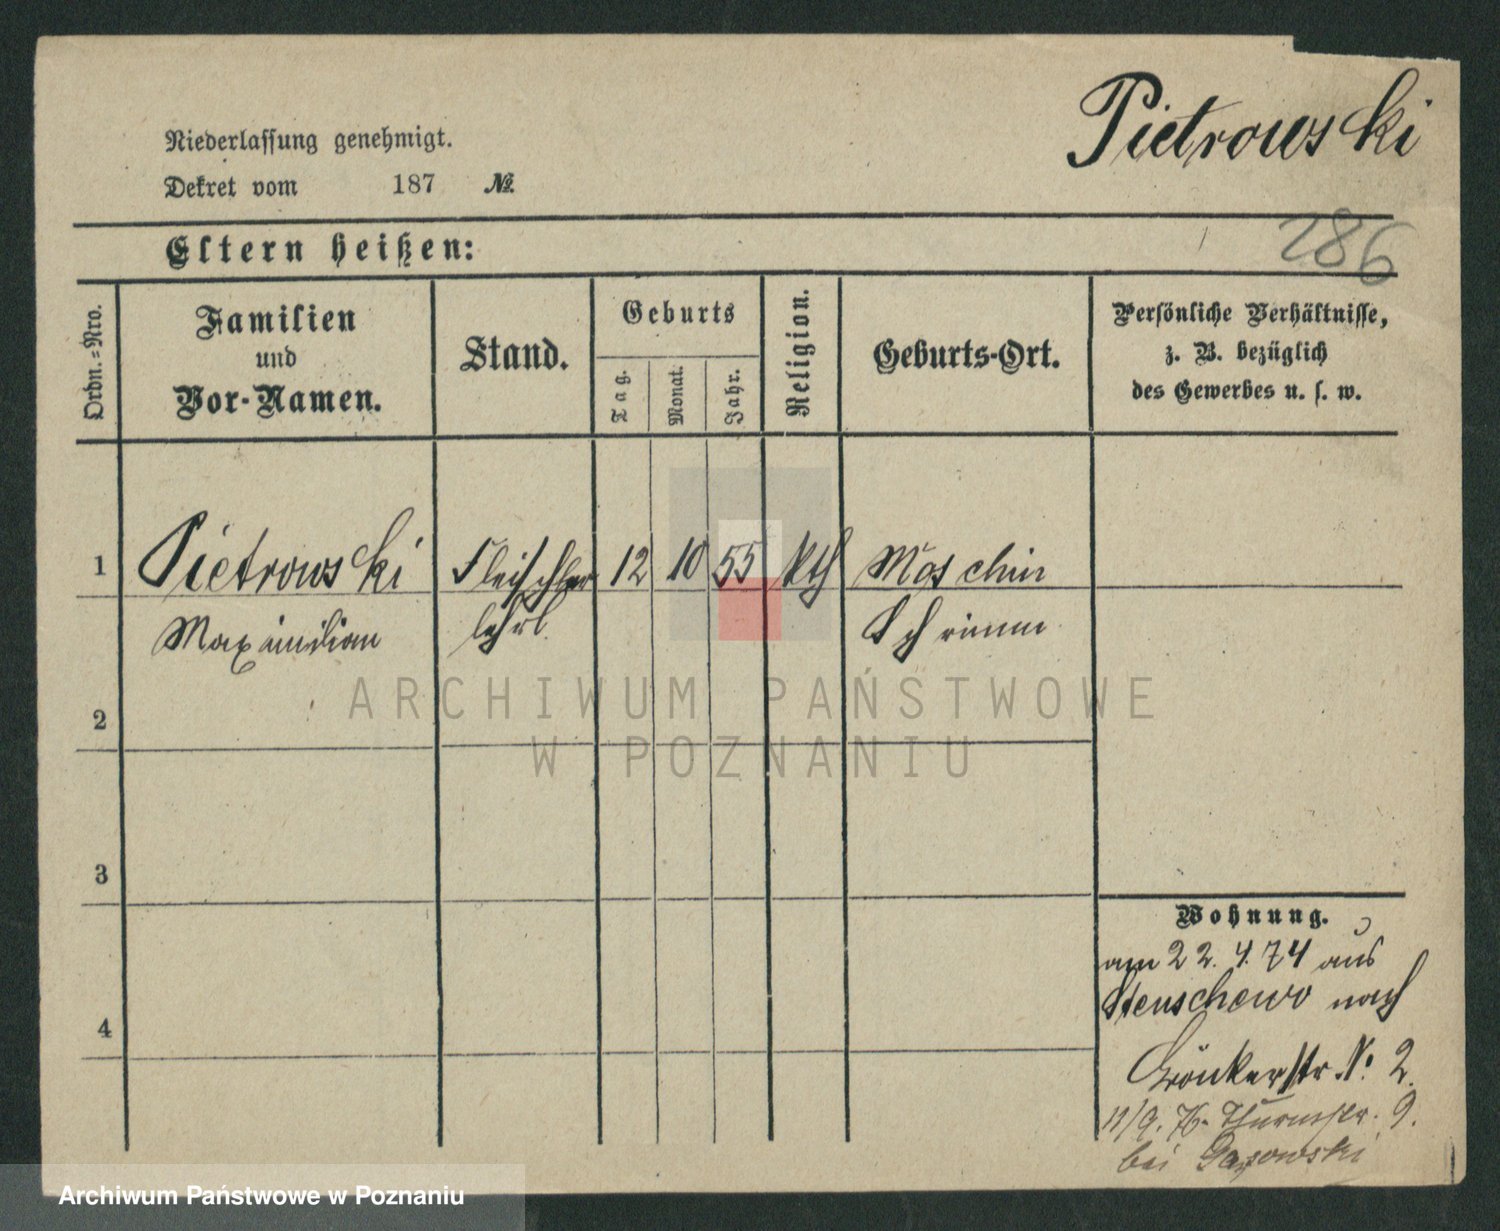 Pietrowski
Niederlassung genehmigt.
Dekret vom 187 №.
286
Eltern heißen:
Ordn.=Nro.
Familien
und
Vor-Namen.
Stand.
Geburts
Tag.
Monat.
Jahr.
Religion.
Geburts-Ort.
Persönliche Verhältnisse,
z. B. bezüglich
des Gewerbes u. s. w.
1 Pietrowski Fleischer 12 10 55 kth Moschin
Maximilian lehrl. Schrimm
2
3
4
Wohnung.
am 22. 4. 74 aus
Stenschewo nach
N: 2.
11/9. 76. Thurmstr. 9.
bei
ARCHIWUM PAŃSTWOWE
W POZNANIU
Archiwum Państwowe w Poznaniu